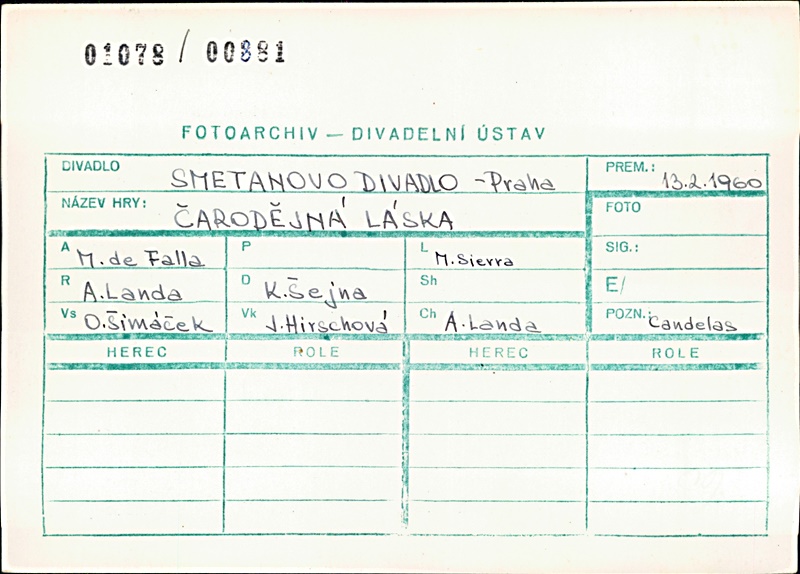 01078 / 00881
FOTOARCHIV — DIVADELNÍ ÚSTAV
DIVADLO SMETANOVO DIVADLO - Praha PREM.: 13.2.1960
NÁZEV HRY: ČARODĚJNÁ LÁSKA FOTO
A M. de Falla P L M. Sierra SIG.:
R A. Landa D K. Šejna Sh E/
Vs O. Šimáček Vk J. Hirschová Ch A. Landa POZN.: Candelas
HEREC ROLE HEREC ROLE